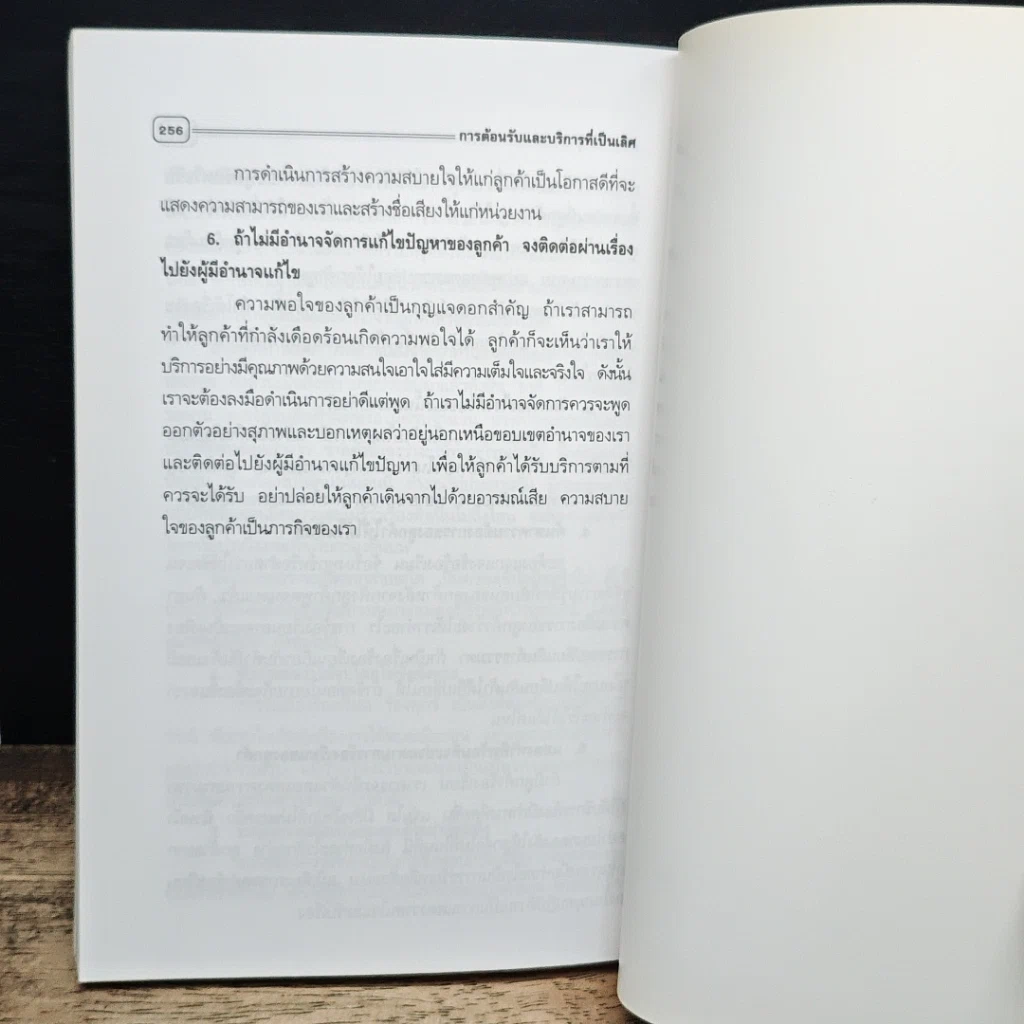 256
การต้อนรับและบริการที่เป็นเลิศ
การดำเนินการสร้างความสบายใจให้แก่ลูกค้าเป็นโอกาสดีที่จะ
แสดงความสามารถของเราและสร้างชื่อเสียงให้แก่หน่วยงาน
6. ถ้าไม่มีอำนาจจัดการแก้ไขปัญหาของลูกค้า จงติดต่อผ่านเรื่อง
ไปยังผู้มีอำนาจแก้ไข
ความพอใจของลูกค้าเป็นกุญแจดอกสำคัญ ถ้าเราสามารถ
ทำให้ลูกค้าที่กำลังเดือดร้อนเกิดความพอใจได้ ลูกค้าก็จะเห็นว่าเราให้
บริการอย่างมีคุณภาพด้วยความสนใจเอาใจใส่มีความเต็มใจและจริงใจ ดังนั้น
เราจะต้องลงมือดำเนินการอย่าดีแต่พูด ถ้าเราไม่มีอำนาจจัดการควรจะพูด
ออกตัวอย่างสุภาพและบอกเหตุผลว่าอยู่นอกเหนือขอบเขตอำนาจของเรา
และติดต่อไปยังผู้มีอำนาจแก้ไขปัญหา เพื่อให้ลูกค้าได้รับบริการตามที่
ควรจะได้รับ อย่าปล่อยให้ลูกค้าเดินจากไปด้วยอารมณ์เสีย ความสบาย
ใจของลูกค้าเป็นภารกิจของเรา